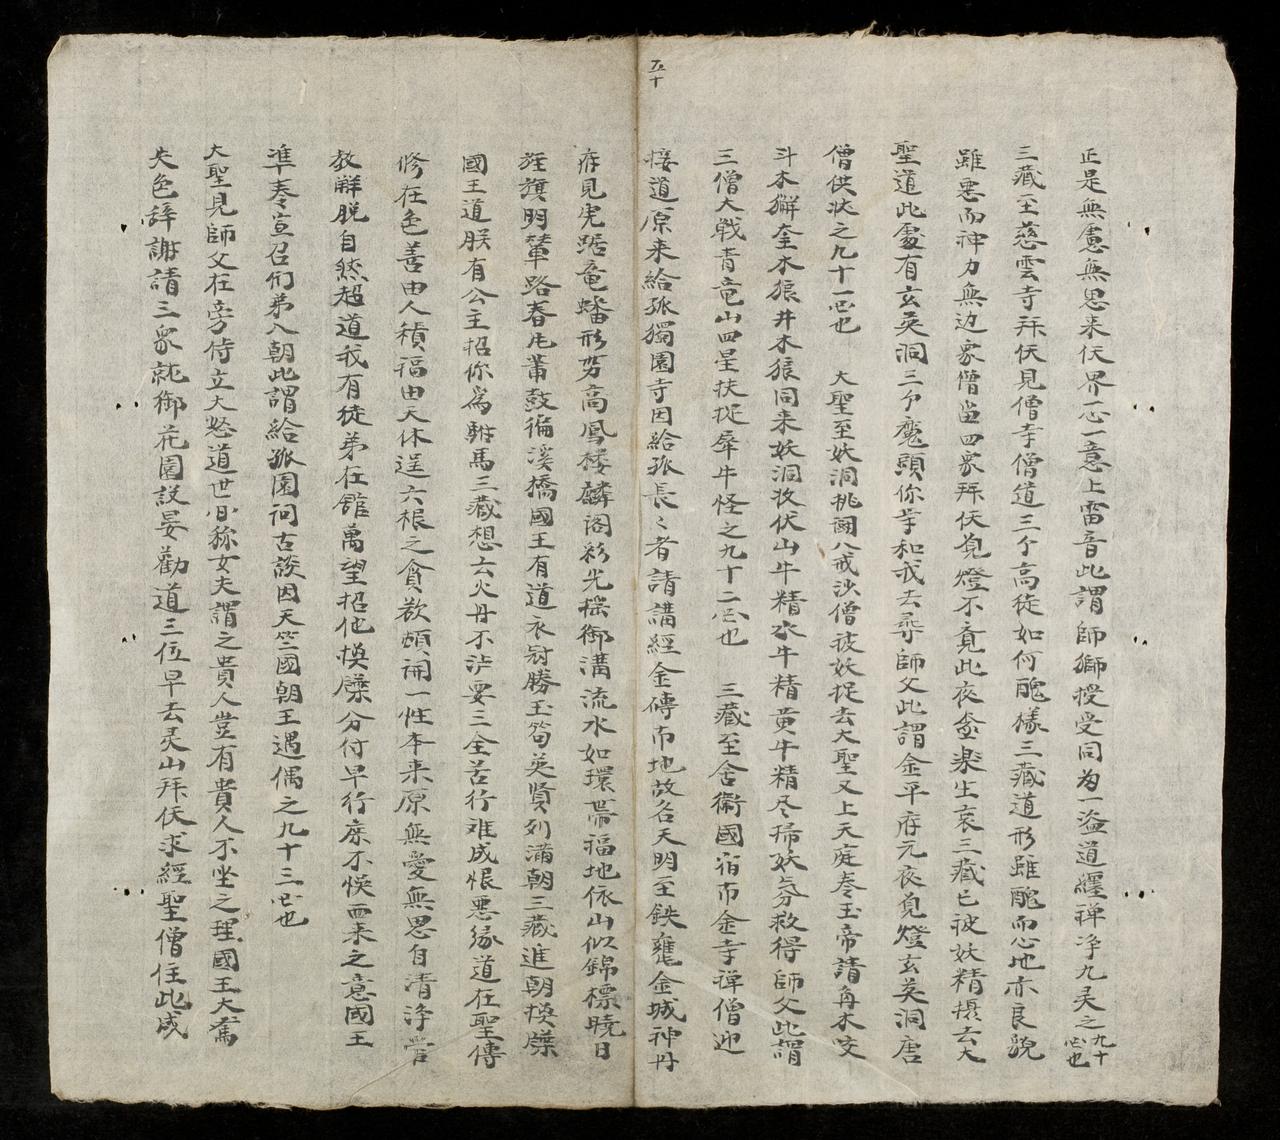 正是無慮無思来仸界一心一意上雷音此謂師獅授受同为一盗道纒禅净九灵之九十忎也
三藏至慈雲寺拜仸見僧寺僧道三个高徒如何醜樣三藏道形雖醜而心地亦良貌
雖悪而神力無边家僧留四衆拜仸覓燈不竟此夜楽生哀三藏已被妖精摄去大
聖道此處有玄英洞三个魔頭你等和我去尋師父此謂金平府元夜覓燈玄英洞唐
僧供状之九十一忎也 大聖至妖洞挑閙八戒沙僧被妖捉去大聖又上天庭奏玉帝請角木咬
斗木獬奎木狼井木狼同来妖洞收伏山牛精水牛精黄牛精尽掃妖氛救得師父此謂
三僧大戰青竜山四星扶捉犀牛怪之九十二忎也 三藏至舍衛國宿布金寺禅僧迎
五十
接道原来給孤獨園寺因給孤長〻者請講經金磚布地故名天明至鉄甕金城神丹
府見虎踞竜蟠形势高鳳楼麟阁彩光摇御溝流水如環帶福地依山似錦標曉日
旌旗明輦路春风簫鼓徧溪橋國王有道衣冠勝玉筍英賢列滿朝三藏進朝换牒
國王道朕有公主招你爲駙馬三藏想六火丹不沾要三全苦行难成恨悪缘道在聖傳
修在色善由人積福由天休逞六根之貪欲頓開一性本来原無愛無思自清净管
教觧脱自然超道我有徒弟在館萬望招他换牒分付早行庶不悮西来之意國王
準奏宣召们弟入朝此謂給孤園问古談因天竺國朝王遇偶之九十三忎也
大聖見師父在旁侍立大怒道世间称女夫謂之貴人豈有貴人不坐之理國王大驚
失色辞謝請三衆就御花園設晏勸道三位早去灵山拜仸求經聖僧住此成